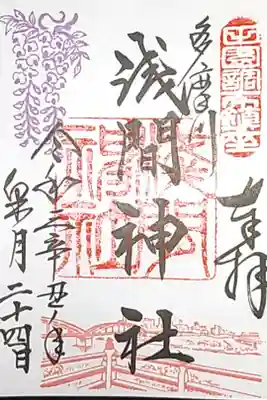 奉拝
多摩川
浅間神社
令和三辛丑年
皐月二十四日